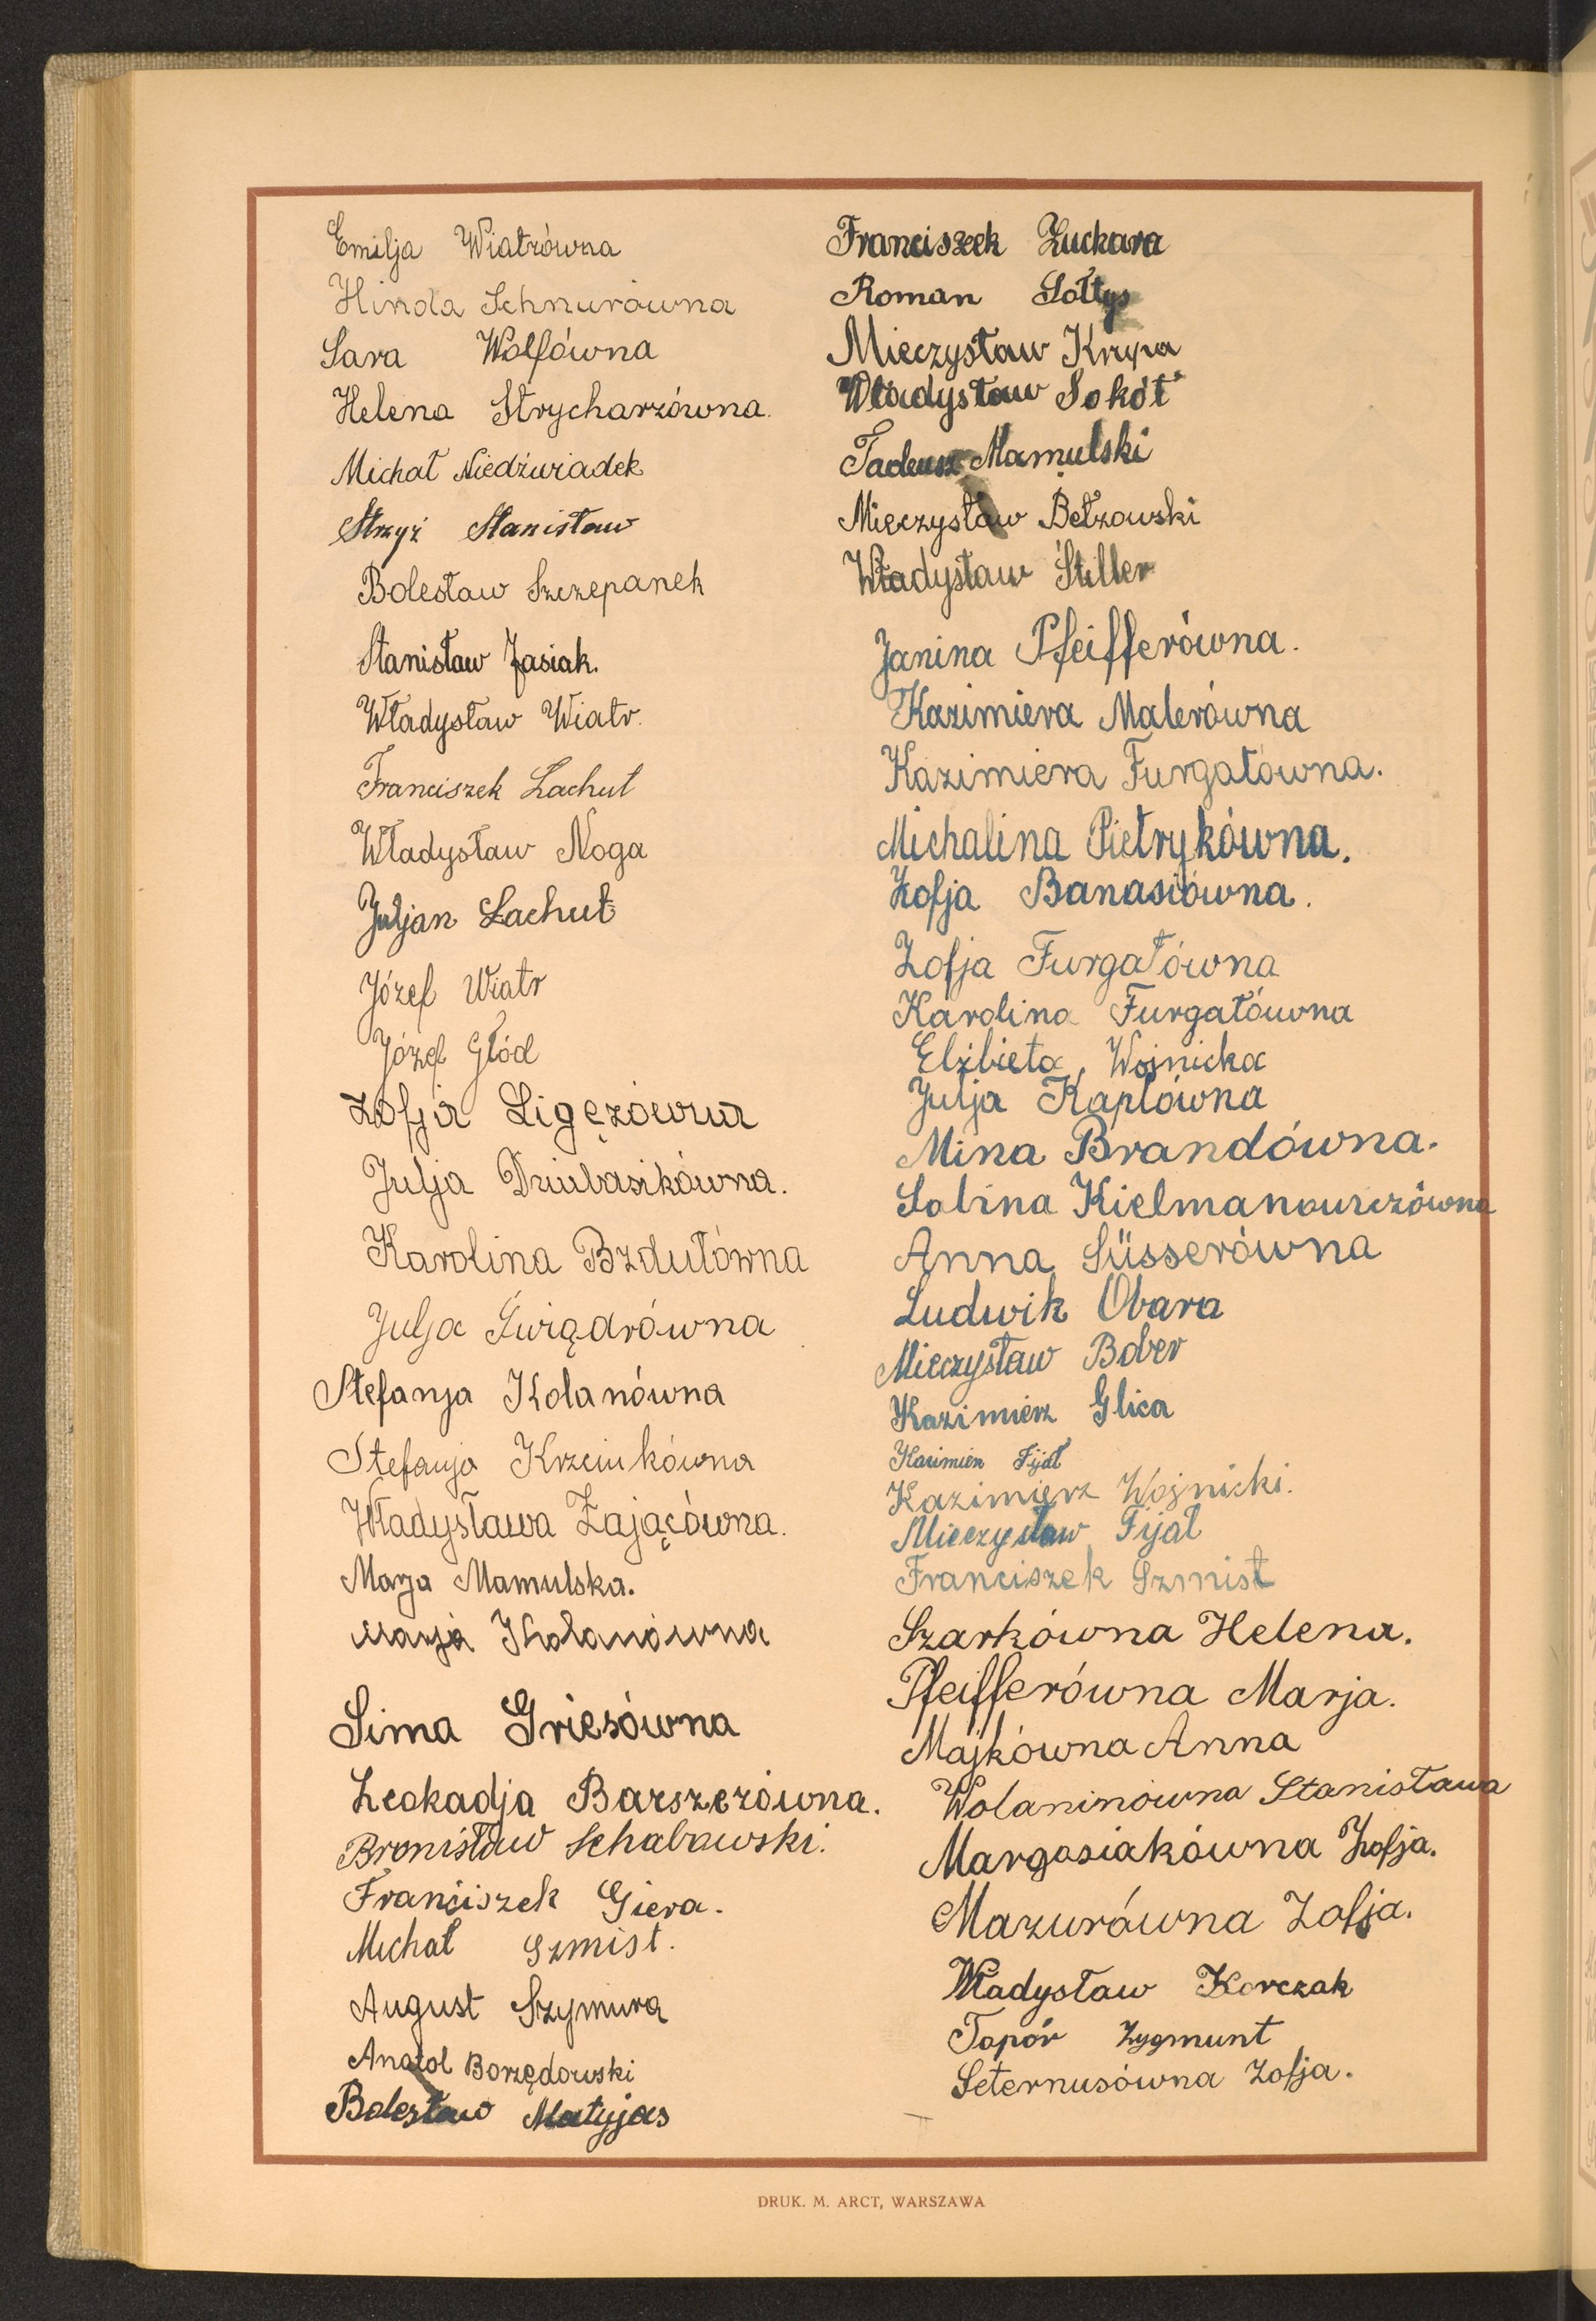 Emilja Wiatrówna
Hinda Schnurówna
Sara Wolfówna
Helena Strycharzówna.
Michał Niedźwiadek
Strzyż Stanisław
Bolesław Szczepanek
Stanisław Jasiak.
Władysław Wiatr.
Franciszek Lachut
Władysław Noga
Juljan Lachut
Józef Wiatr
Józef Głód
Zofja Ligęzówna
Julja Dziubasikówna.
Karolina Bzdułówna
Julja Świądrówna
Stefanja Kolanówna
Stefanja Krzciukówna
Władysława Zającówna.
Marja Mamulska.
Marja Kolanówna
Sima Griesówna
Leokadja Barszczówna.
Bronisław Schabowski.
Franciszek Giera.
Michał Szmist.
August Szymura
Anatol Borzędowski
Bolesław Matyjas
Franciszek Żuchara
Roman Sołtys
Mieczysław Krupa
Władysław Sokół
Tadeusz Mamulski
Mieczysław Bełzowski
Władysław Stiller
Janina Pfeifferówna.
Kazimiera Malerówna
Kazimiera Furgałówna.
Michalina Pietrykówna.
Zofja Banasiówna.
Zofja Furgałówna
Karolina Furgałówna
Elżbieta Wojnicka
Julja Kaplówna
Mina Brandówna.
Sabina Kielmanowiczówna
Anna Süsserówna
Ludwik Obara
Mieczysław Bober
Kazimierz Glica
Kazimierz Fijał
Kazimierz Wojnicki.
Mieczysław Fijał
Franciszek Szmist
Szarkówna Helena.
Pfeifferówna Marja.
Majkówna Anna
Wolaninówna Stanisława
Margasiakówna Zofja.
Mazurówna Zofja.
Władysław Korczak
Topór Zygmunt
Seternusówna Zofja.
DRUK. M. ARCT, WARSZAWA